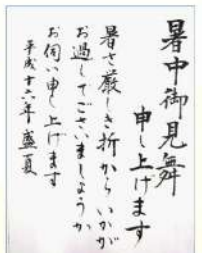 暑中御見舞
申し上げます
暑さ厳しき折からいかが
お過しでございましょうか
お伺い申し上げます
平成十六年 盛夏